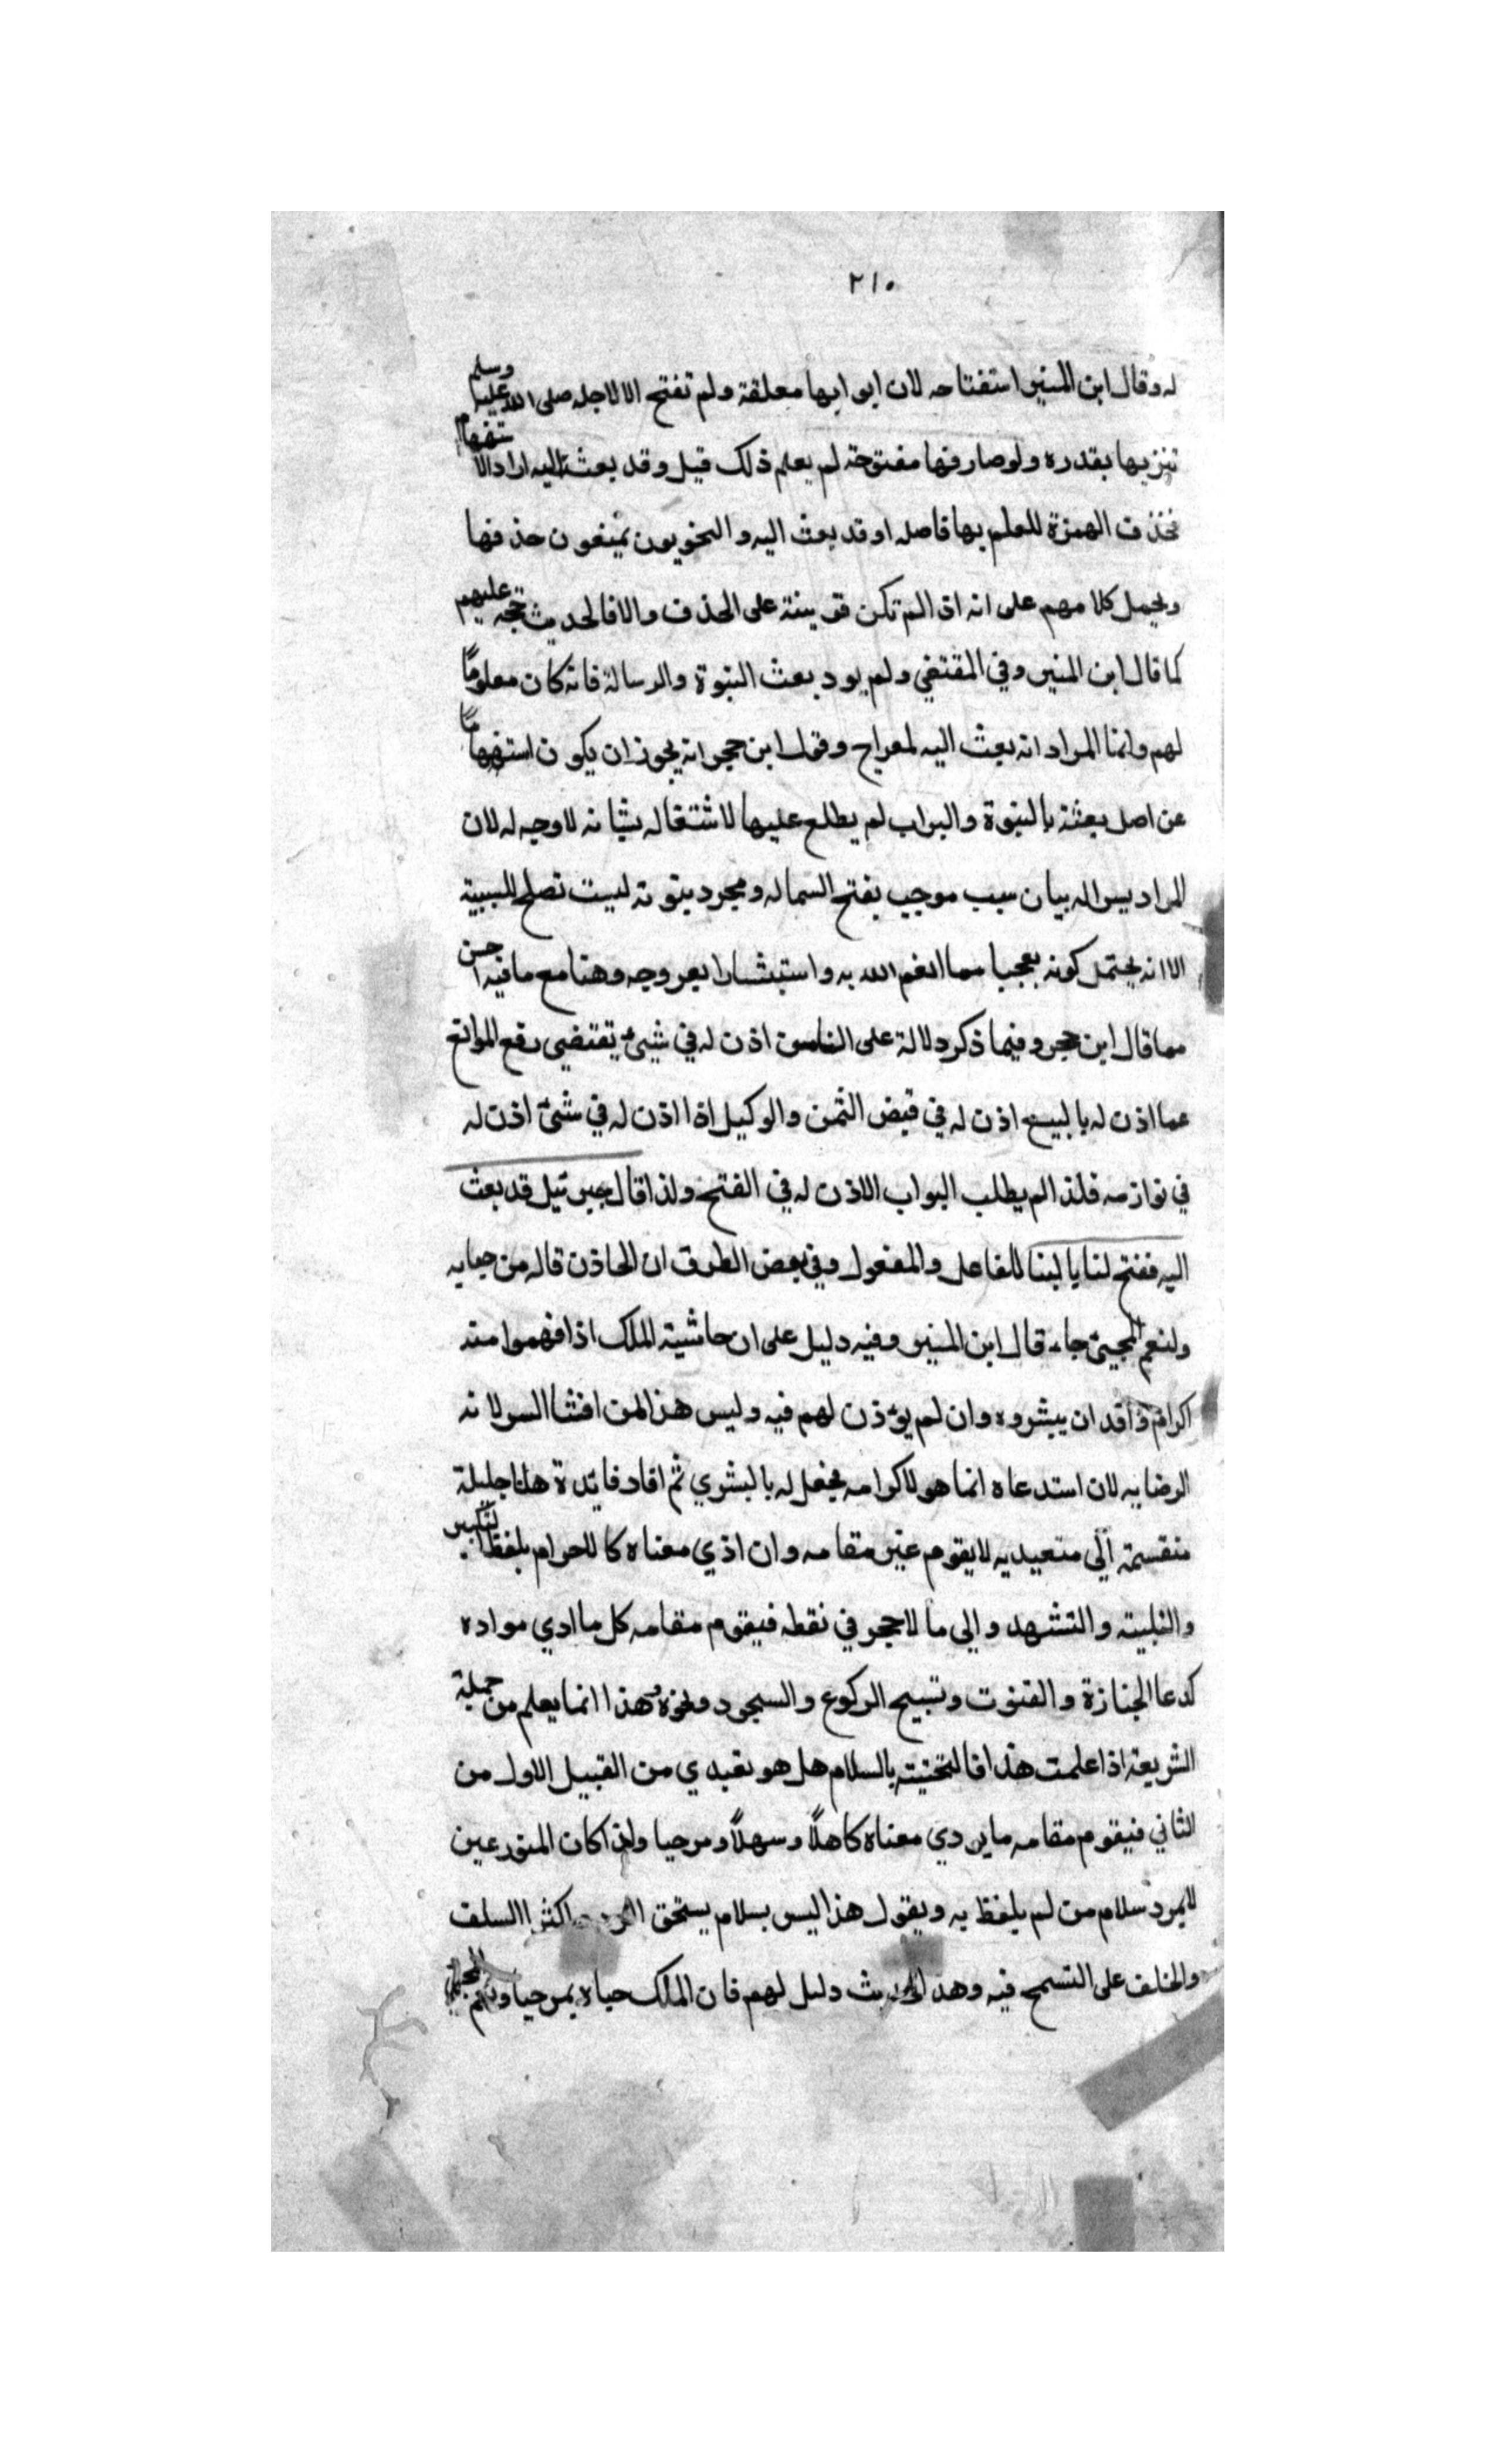 ٢١٠
له وقال ابن المنير استفتاحه لان ابوابها معلقة ولم تفتح الا لاجله صلى الله عليه وسلم
تنزيها بقدره ولو صارفها مفتوحة لم يعلم ذلك قيل وقد بعث اليه اراد الاستفهام
فحذف الهمزة للعلم بها فاصله اوقد بعث اليه والنحويون يمنعون حذفها
ويحمل كلامهم على انه اذا لم تكن قرينة على الحذف والا فالحديث حجة عليهم
كما قال ابن المنير وفي المقتفي ولم يرد بعث النبوة والرسالة فانه كان معلوما
لهم وانما المراد انه بعث اليه لمعراج وقول ابن حجر انه يجوز ان يكون استفهاما
عن اصل بعثة بالنبوة والبواب لم يطلع عليها لاشتغاله بشانه لا وجه له لان
المراد بسواله بيان سبب موجب بفتح السما له ومجرد نبوته ليست تصلح للسببية
الا انه يحتمل كونه تعجبا مما انعم الله به واستبشارا بعروجه وهنا مع ما فيه احسن
مما قال ابن حجر وفيما ذكر دلالة على ان من اذن له في شيئ يقتضي رفع الموانع
عما اذن له بالبيع اذن له في قبض الثمن والوكيل اذا اذن له في شئ اذن له
في نوازمه فلذا لم يطلب البواب الاذن له في الفتح ولذا قال جبرئيل قد بعث
اليه ففتح لنا بالبنا للفاعل والمفعول وفي بعض الطرق ان الخاذن قال مرحبا به
ولنعم المجيئ جاء قال ابن المنير وفيه دليل على ان حاشية الملك اذا فهموا منه
اكرام وافد ان يبشروه وان لم يؤذن لهم فيه وليس هذا من افشا السر لانه
الرضا به لان استدعاه انما هو لاكرامه بجعل له بالبشري ثم افاد فايدة هنا جليلة
منقسمة الى متعبد به لا يقوم غير مقامه وان ادي معناه كالاحرام بلفظ التكبير
والتلبية والتشهد والى ما لا حجر في نقطه فيقوم مقامه كل ما ادي مواده
كدعا الجنازة والقنوت وتسبيح الركوع والسجود ونحوه وهذا انما يعلم من جملة
الشريعة اذا علمت هذا فالتحية بالسلام هل هو تعبدي من القبيل الاول من
الثاني فيقوم مقامه ما يردي معناه كاهلاً وسهلاً ومرحبا ولذا كان المتورعين
لا يرد سلام من لم يلفظ به ويقول هذا ليس بسلام يستحق اكثر السلف
والخلف على التسمح فيه وهذا الحديث دليل لهم فان الملك حياه بمرحبا ونعم المجيئ